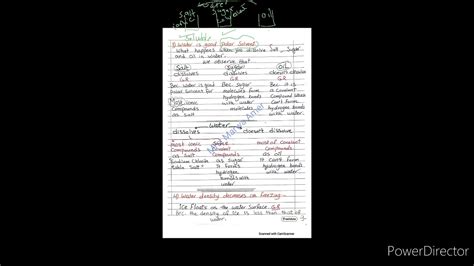 salt
sugar
oil
Solute
3) Water is good (Polar Solvent)
What happens when you dissolve Salt, Sugar
and oil in water.
we observe that
Salt Sugar Oil
dissolves dissolves doesn't dissolve
G.R G.R G.R
Bec. water is good Bec. Sugar Bec. it is
Polar Solvent for molecules form a Covalent
most ionic hydrogen bonds Compound which
Compounds with water Can't form
as salt molecules hydrogen bonds
with water
Water
dissolves doesn't dissolve
most ionic Some most of covalent
Compounds Covalent Compounds
as salt Compounds as oil
Sodium Chloride as Sugar it Can't form
table Salt It forms hydrogen bonds
hydrogen with water
bonds with
water
4) Water density decreases on freezing:-
Ice Floats on the water Surface G.R
Bec. the density of ice is less than that of
water.
Scanned with CamScanner
PowerDirector